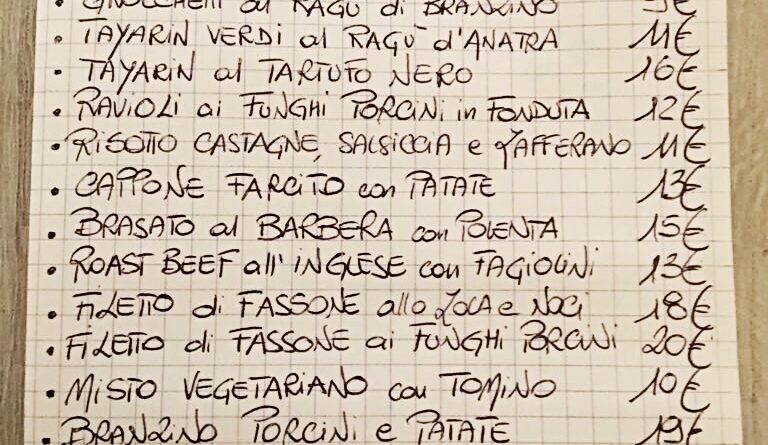 • GNOCCHETTI al RAGÙ di BRANZINO 9€
• TAYARIN VERDI al RAGÙ d'ANATRA 11€
• TAYARIN al TARTUFO NERO 16€
• RAVIOLI ai FUNGHI PORCINI in FONDUTA 12€
• RISOTTO CASTAGNE, SALSICCIA e ZAFFERANO 11€
• CAPPONE FARCITO con PATATE 13€
• BRASATO al BARBERA con POLENTA 15€
• ROAST BEEF all'INGLESE con FAGIOLINI 13€
• FILETTO di FASSONE allo ZOLA e NOCI 18€
• FILETTO di FASSONE ai FUNGHI PORCINI 20€
• MISTO VEGETARIANO con TOMINO 10€
• BRANZINO PORCINI e PATATE 19€